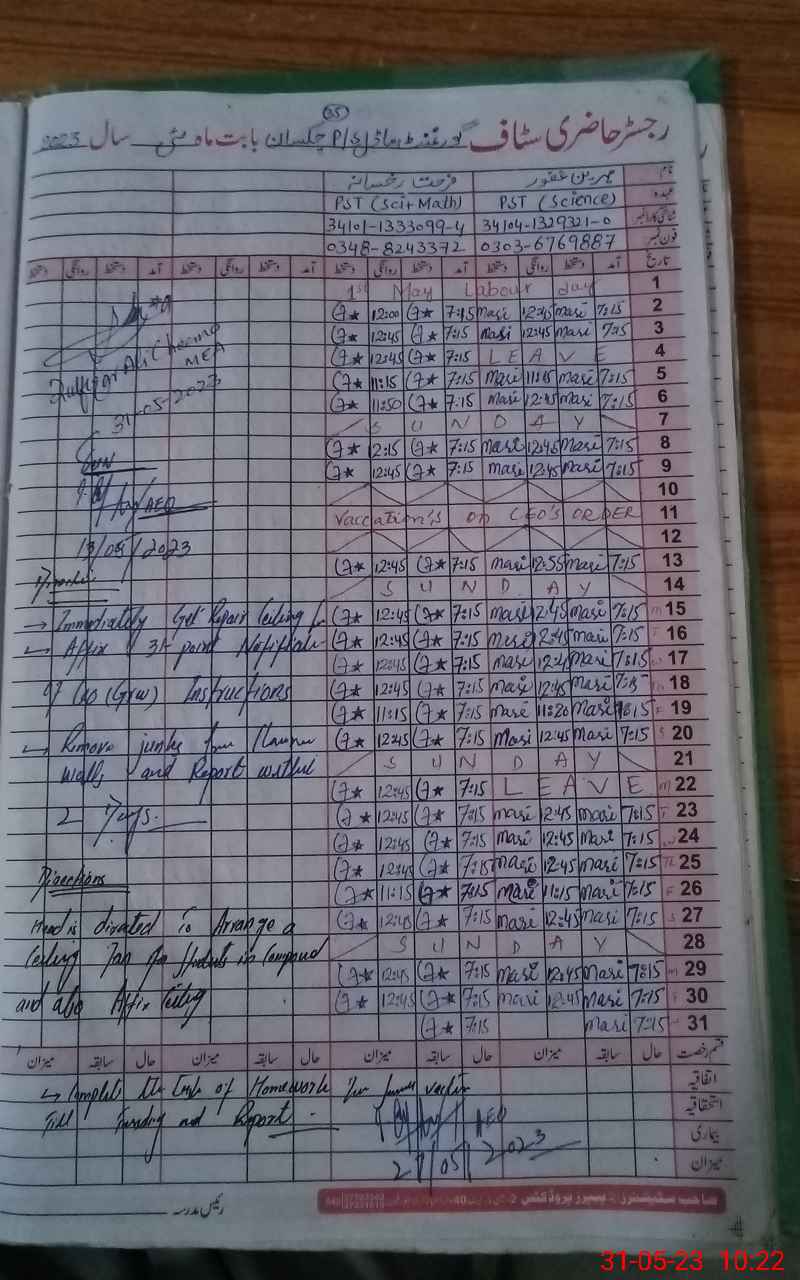 35
رجسٹر حاضری سٹاف گورنمنٹ ماڈل P/S چکسان بابت ماہ مئی سال 2023
نام مہرین غفور فرحت رخسانہ
عہدہ PST (Science) PST (Sci+Math)
شناختی کارڈ نمبر 34104-1329321-0 34101-1333099-4
فون نمبر 0303-6769887 0348-8243372
تاریخ آمد دستخط روانگی دستخط آمد دستخط روانگی دستخط آمد دستخط روانگی دستخط آمد دستخط روانگی دستخط
1st May Labour day 1
12:00 7:15 Masi 12:45 Masi 7:15 2
12:45 7:15 Masi 12:45 Masi 7:15 3
12:45 7:15 LEAVE 4
11:15 7:15 Masi 11:15 Masi 7:15 5
11:50 7:15 Masi 12:45 Masi 7:15 6
SUNDAY 7
12:15 7:15 Masi 12:45 Masi 7:15 8
12:45 7:15 Masi 12:45 Masi 7:15 9
10
Vaccation's on CEO's ORDER 11
12
12:45 7:15 Masi 12:55 Masi 7:15 13
SUNDAY 14
12:45 7:15 Masi 12:45 Masi 7:15 15
12:45 7:15 Masi 12:45 Masi 7:15 16
12:45 7:15 Masi 12:45 Masi 7:15 17
12:45 7:15 Masi 12:45 Masi 7:15 18
11:15 7:15 Masi 11:20 Masi 7:15 19
12:45 7:15 Masi 12:45 Masi 7:15 20
SUNDAY 21
12:45 7:15 LEAVE 22
12:45 7:15 Masi 12:45 Masi 7:15 23
12:45 7:15 Masi 12:45 Masi 7:15 24
12:45 7:15 Masi 12:45 Masi 7:15 25
11:15 7:15 Masi 11:15 Masi 7:15 26
12:45 7:15 Masi 12:45 Masi 7:15 27
SUNDAY 28
12:45 7:15 Masi 12:45 Masi 7:15 29
12:45 7:15 Masi 12:45 Masi 7:15 30
7:15 Masi 7:15 31
Zulfiqar Ali Cheema
MEA
31-05-2023
AEO
13/05/2023
→ Immediately Get Repair Ceiling
→ Affix 31 point
of CEO (GRW) Instructions
→ Remove junks from
walls and Report within
2 Days.
Directions
Head is directed to Arrange a
Ceiling Fan for Students in Compound
and also Affix Ceiling
قسم رخصت حال سابقہ میزان حال سابقہ میزان حال سابقہ میزان حال سابقہ میزان
اتفاقیہ
استحقاقیہ
بیماری
میزان
→ Complete the task of Homework
Till and Report.
AEO
27/05/2023
رئیس مدرسہ
صاحب سٹیشنرز پیپرز پروڈکٹس
31-05-23 10:22